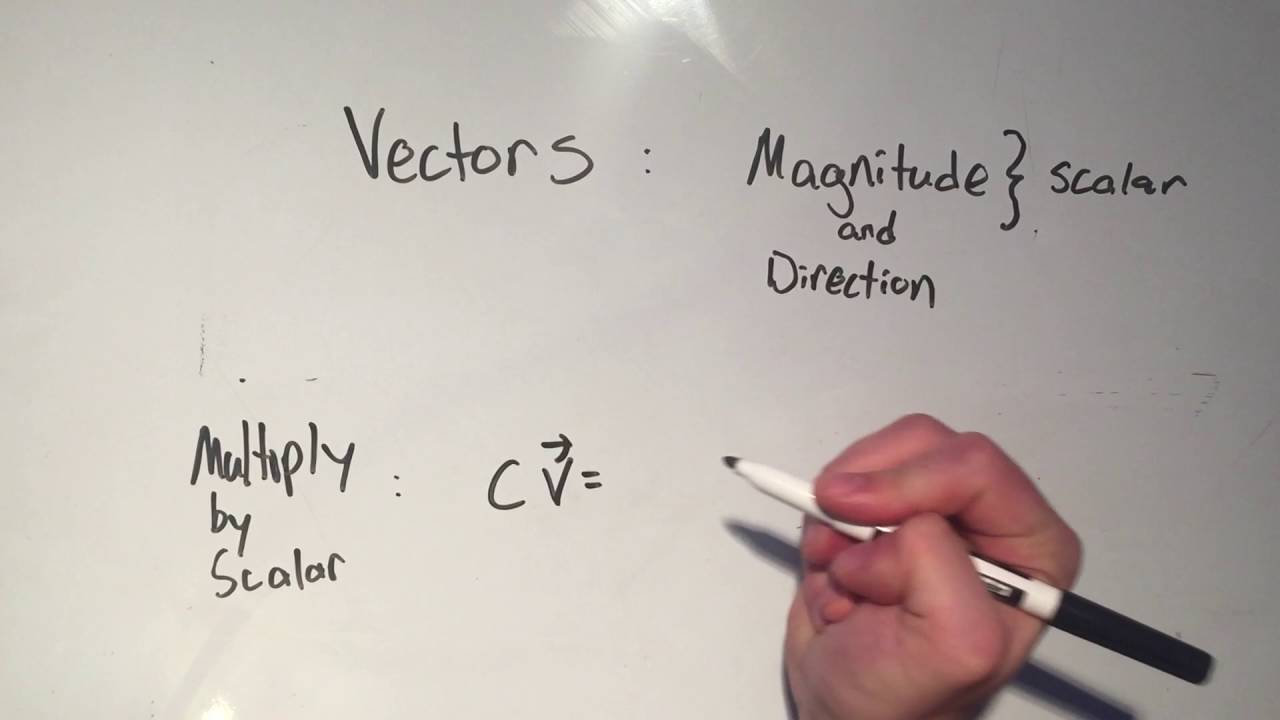 Vectors : Magnitude } scalar
and
Direction
Multiply : C V⃗ =
by
Scalar